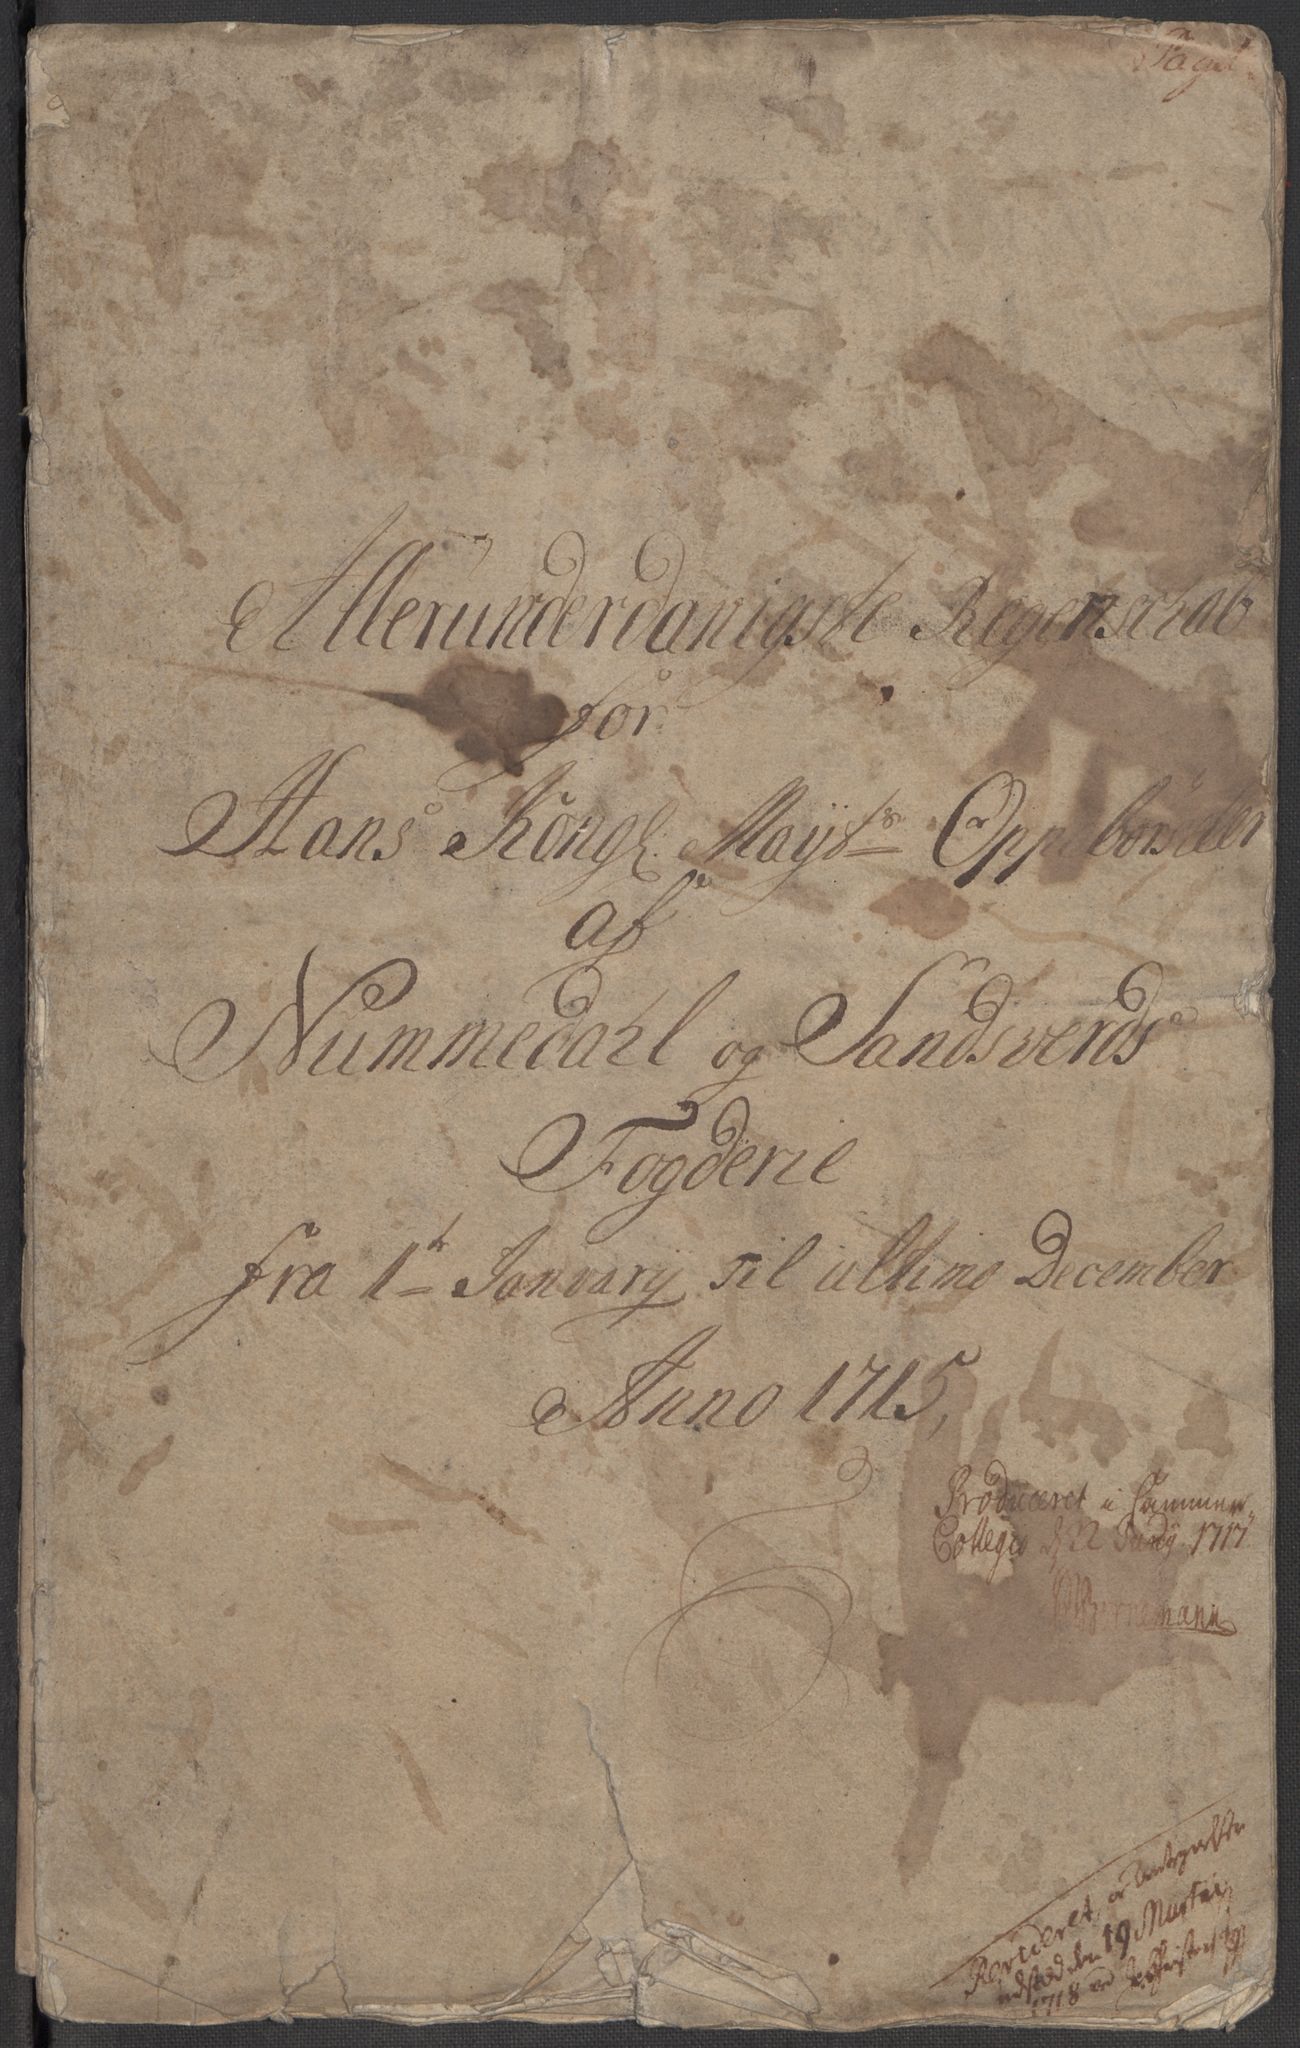 Allerunderdanigste Regenschab
for
Hans Kongl: Mayts Oppebørseler
af
Nummedahl og Sandsverds
Fogderie
fra 1te January til ultimo December
Anno 1715,
Produceret i Cammer
Collegio d 22 Juny 1717
Bornemann
Revideret, og
udsted den 19 Martij
1718